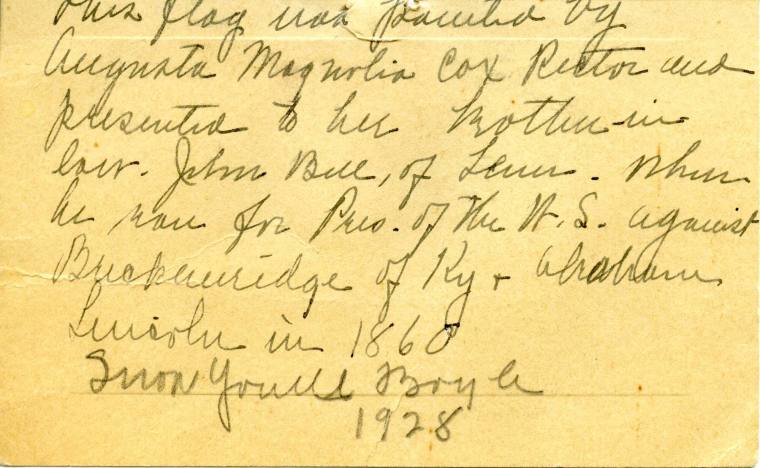 This flag was painted by
Augusta Magnolia Cox Rector and
presented to her Brother-in
law. John Bell, of Tenn. When
he ran for Pres. of the U.S. against
Breckenridge of Ky + Abraham
Lincoln in 1860
Boyle
1928